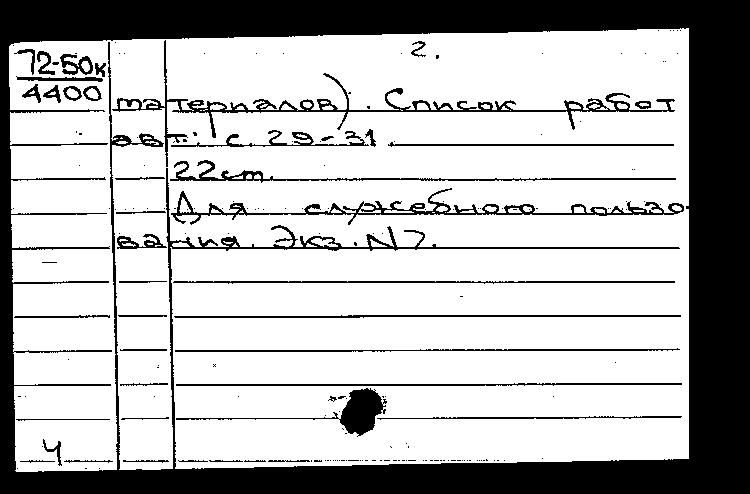 2.
72-50к
4400
материалов). Список работ
авт.: с. 29-31.
22см.
Для служебного пользо-
вания. Экз. N7.
Ч